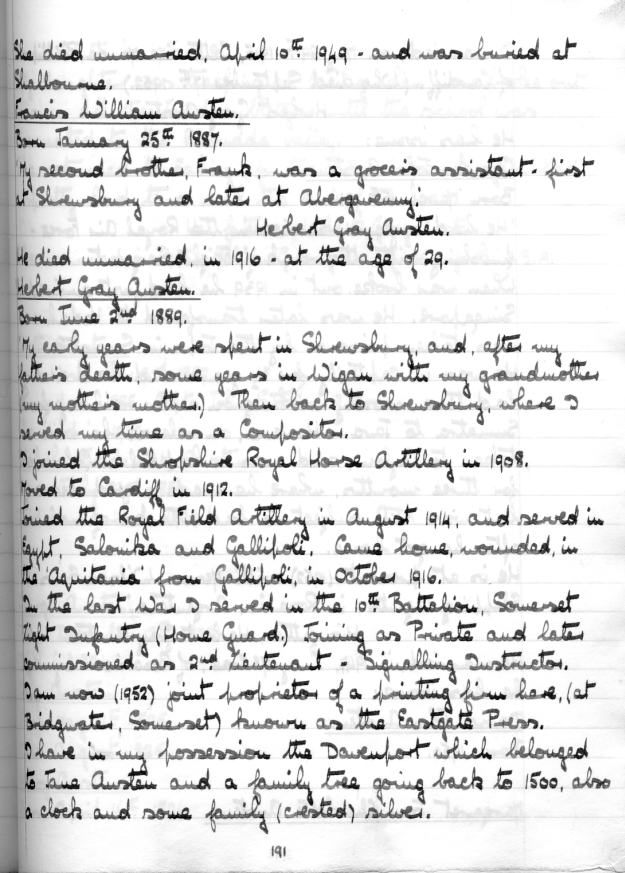 She died unmarried, April 10th 1949 - and was buried at
Shalbourne.
Francis William Austen.
Born January 25th 1887.
My second brother, Frank, was a grocer's assistant - first
at Shrewsbury and later at Abergavenny.
Herbert Gray Austen.
He died unmarried, in 1916 - at the age of 29.
Herbert Gray Austen.
Born June 2nd 1889.
My early years were spent in Shrewsbury, and, after my
father's death, some years in Wigan with my grandmother
(my mother's mother.) Then back to Shrewsbury, where I
served my time as a Compositor.
I joined the Shropshire Royal Horse Artillery in 1908.
Moved to Cardiff in 1912.
Joined the Royal Field Artillery in August 1914, and served in
Egypt, Salonika and Gallipoli. Came home, wounded, in
the 'Aquitania' from Gallipoli, in October 1916.
In the last War I served in the 10th Battalion, Somerset
Light Infantry (Home Guard.) Joining as Private and later
commissioned as 2nd Lieutenant - Signalling Instructor.
I am now (1952) joint proprietor of a printing firm here, (at
Bridgwater, Somerset) known as the Eastgate Press.
I have in my possession the Davenport which belonged
to Jane Austen and a family tree going back to 1500, also
a clock and some family (crested) silver.
191